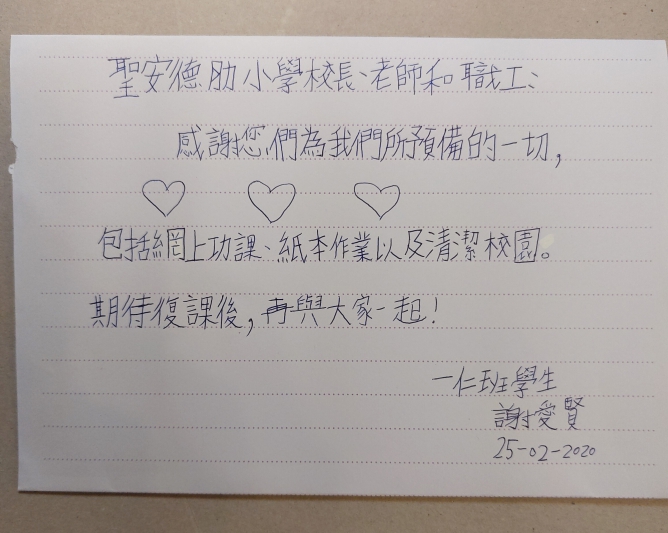 聖安德肋小學校長、老師和職工、
感謝您們為我們所預備的一切，
包括網上功課、紙本作業以及清潔校園。
期待復課後，再與大家一起！
一仁班學生
謝愛賢
25-02-2020